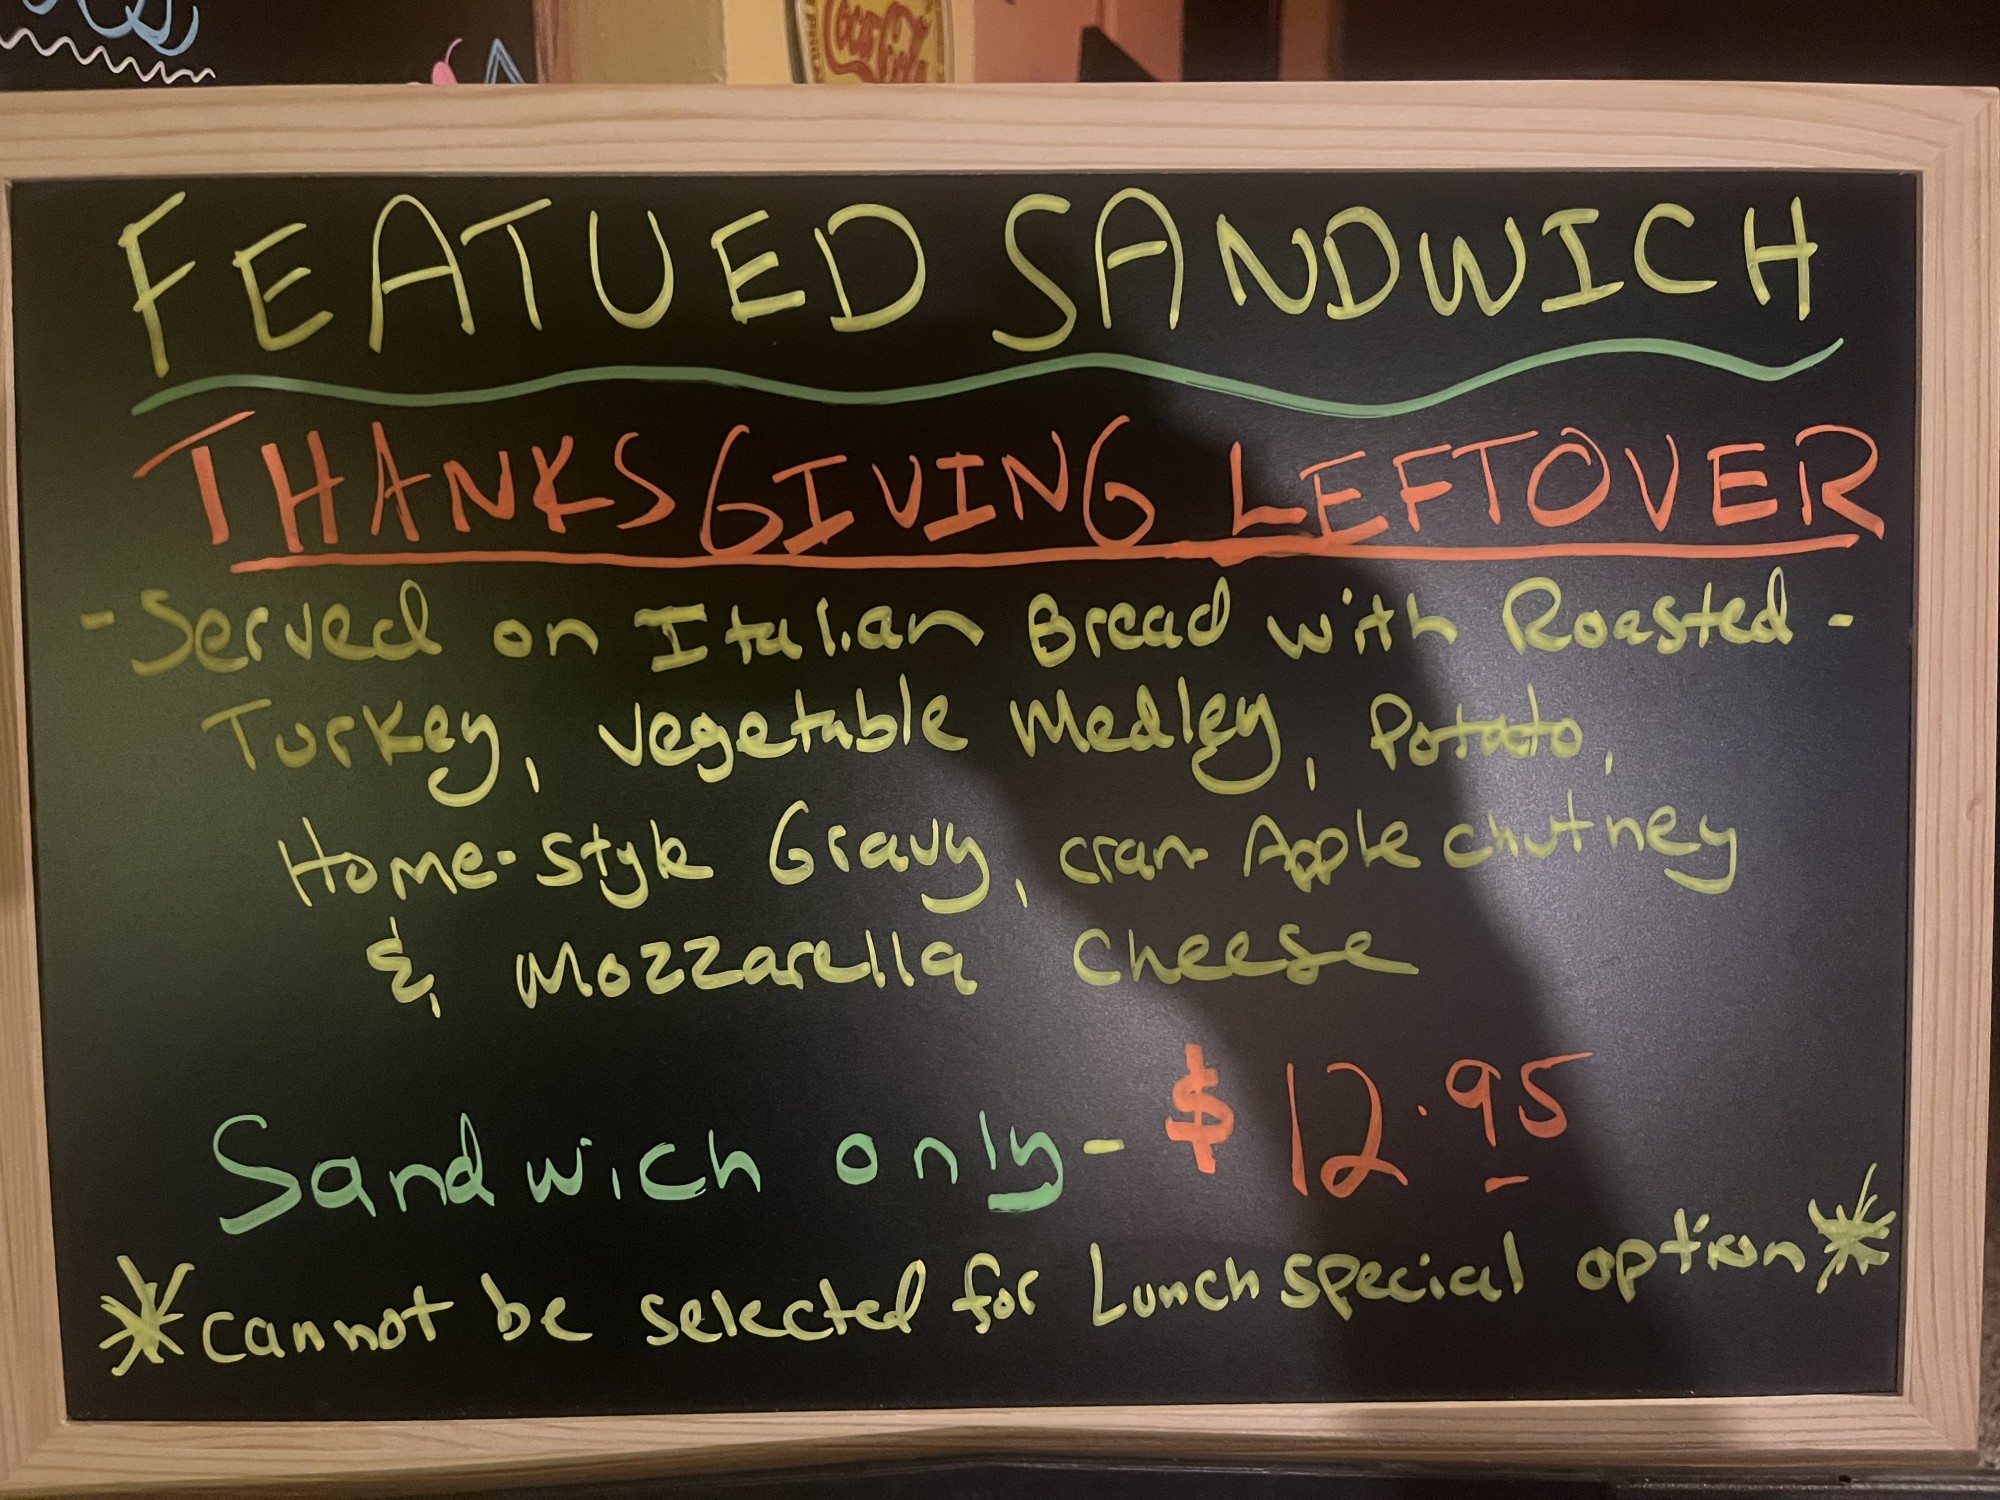 Coca-Cola
FEATUED SANDWICH
THANKSGIVING LEFTOVER
- Served on Italian Bread with Roasted -
Turkey, vegetable Medley, Potato,
Home-style Gravy, cran Apple chutney
& Mozzarella cheese
Sandwich only - $12.95
*cannot be selected for Lunch special option*